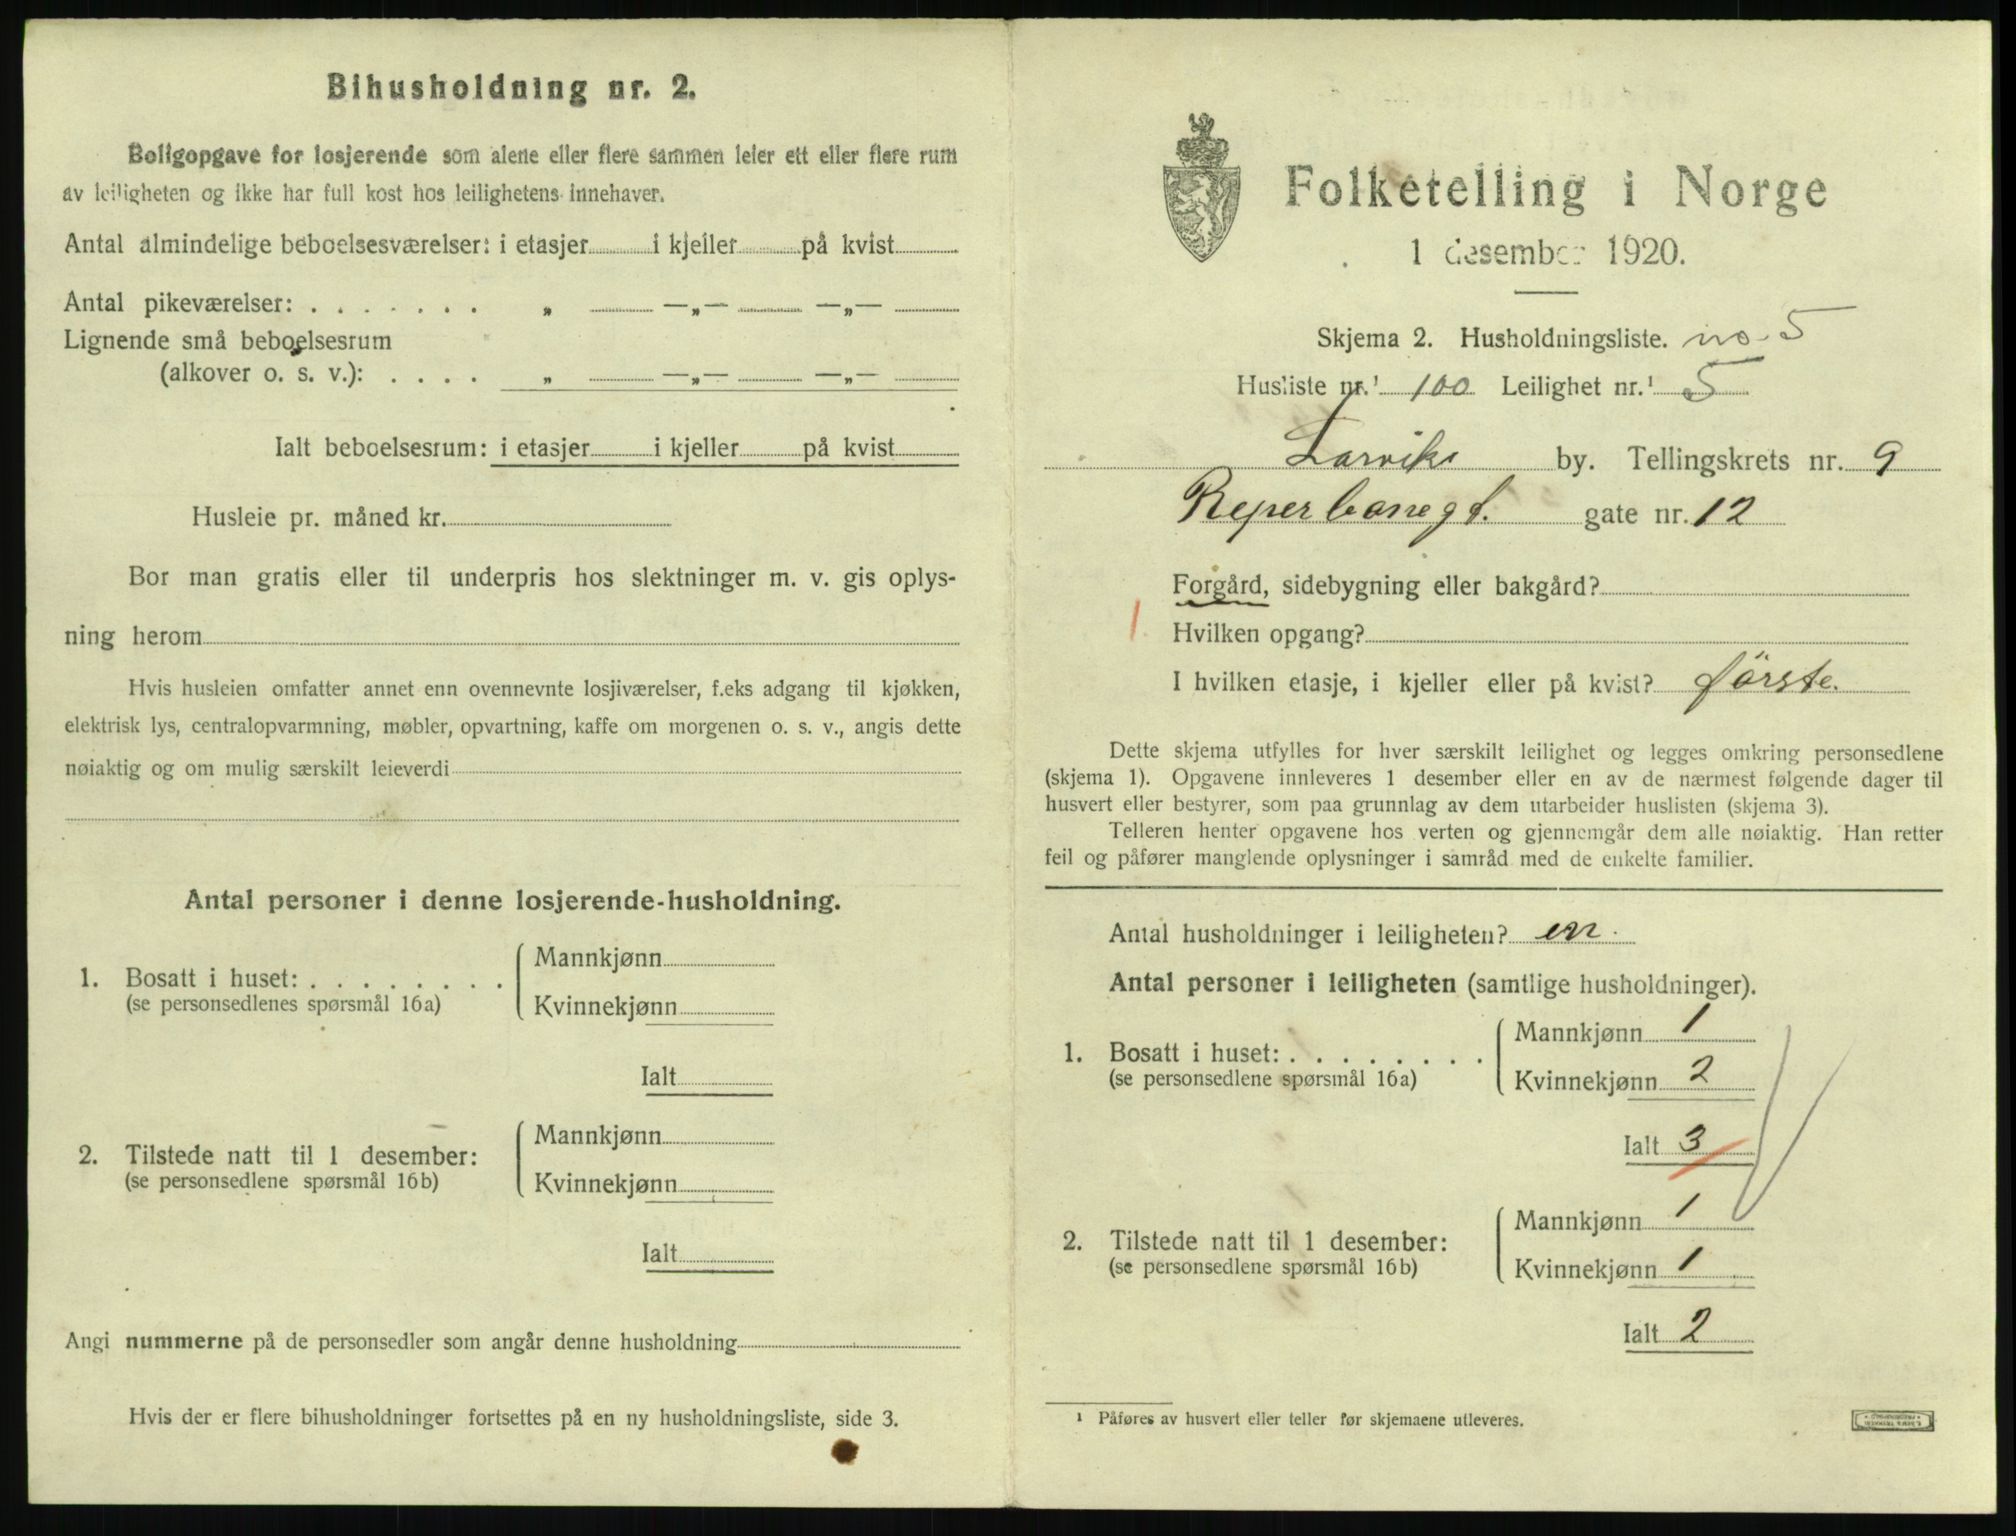 Bihusholdning nr. 2.
Boligopgave for losjerende som alene eller flere sammen leier ett eller flere rum
av leiligheten og ikke har full kost hos leilighetens innehaver.
Antal almindelige beboelsesværelser: i etasjer i kjeller på kvist
Antal pikeværelser: . . . . . . . „ —„— —„—
Lignende små beboelsesrum
(alkover o. s. v.): . . . . „ —„— —„—
Ialt beboelsesrum: i etasjer i kjeller på kvist
Husleie pr. måned kr.
Bor man gratis eller til underpris hos slektninger m. v. gis oplys-
ning herom
Hvis husleien omfatter annet enn ovennevnte losjiværelser, f.eks adgang til kjøkken,
elektrisk lys, centralopvarmning, møbler, opvartning, kaffe om morgenen o. s. v., angis dette
nøiaktig og om mulig særskilt leieverdi
Antal personer i denne losjerende-husholdning.
1. Bosatt i huset: . . . . . . . .
(se personsedlenes spørsmål 16a)
Mannkjønn
Kvinnekjønn
Ialt
2. Tilstede natt til 1 desember:
(se personsedlene spørsmål 16b)
Mannkjønn
Kvinnekjønn
Ialt
Angi nummerne på de personsedler som angår denne husholdning
Hvis der er flere bihusholdninger fortsettes på en ny husholdningsliste, side 3.
Folketelling i Norge
1 desember 1920.
Skjema 2. Husholdningsliste. no. 5
Husliste nr.¹ 100 Leilighet nr.¹ 5
Larviks by. Tellingskrets nr. 9
Reperbanegt. gate nr. 12
Forgård, sidebygning eller bakgård?
1
Hvilken opgang?
I hvilken etasje, i kjeller eller på kvist? förste.
Dette skjema utfylles for hver særskilt leilighet og legges omkring personsedlene
(skjema 1). Opgavene innleveres 1 desember eller en av de nærmest følgende dager til
husvert eller bestyrer, som paa grunnlag av dem utarbeider huslisten (skjema 3).
Telleren henter opgavene hos verten og gjennemgår dem alle nøiaktig. Han retter
feil og påfører manglende oplysninger i samråd med de enkelte familier.
Antal husholdninger i leiligheten? en.
Antal personer i leiligheten (samtlige husholdninger).
1. Bosatt i huset: . . . . . . . .
(se personsedlene spørsmål 16a)
Mannkjønn 1
Kvinnekjønn 2
Ialt 3
2. Tilstede natt til 1 desember:
(se personsedlene spørsmål 16b)
Mannkjønn 1
Kvinnekjønn 1
Ialt 2
¹ Påføres av husvert eller teller før skjemaene utleveres.